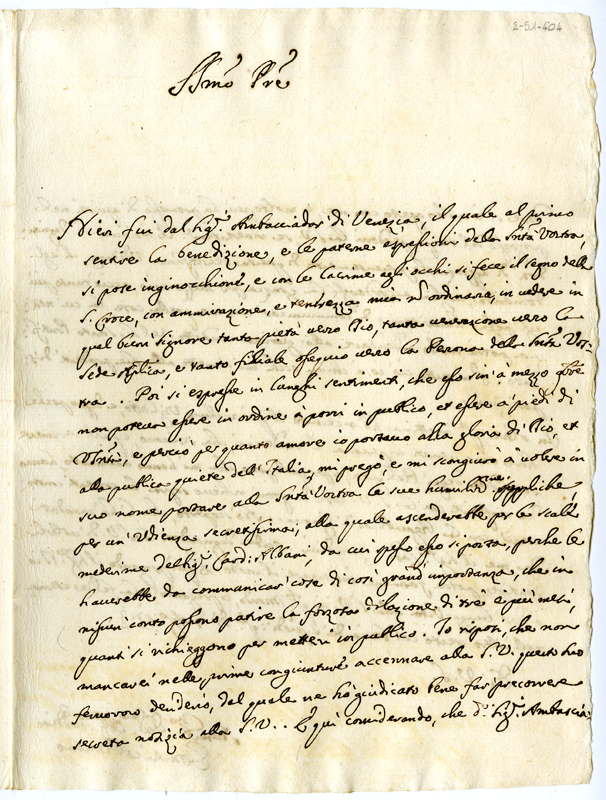 2-51-404
SSmo Pre
Hieri fui dal Sigr. Ambasciador di Venezia, il quale al primo
sentire la benedizione, e le paterne espressioni della Sntà Vostra,
si pose inginocchione, e con le lacrime agli occhi si fece il segno della
S. Croce, con ammirazione, e tenerezza mia nō ordinaria, in vedere in
quel buon Signore tanta pietà verso Dio, tanta venerazione verso la
Sede Aplica, e tanto filiale ossequio verso la Persona della Sntà Vos-
tra. Poi si espresse in lunghi sentimenti, che esso sin' a mezzo 8bre
non poteva essere in ordine à porsi in publico, et essere a' piedi di
V. Sntà, e perciò per quanto amore io portavo alla gloria di Dio, et
alla publica quiete dell'Italia, mi pregò, e mi scongiurò à volere in
suo nome portare alla Sntà Vostra le sue humilissime suppliche,
per un' Udienza secretissima, alla quale ascenderebbe per le scale
medesime del Sigr. Card: Albani, da cui spesso esso si porta, perche le
haverebbe da communicar' cose di così grand' importanza, che in
nissun conto possono patire la forzosa dilazione di trè e più mesi,
quanti si richieggono per mettersi in publico. Io risposi, che non
mancarei nelle prime congiunture accennare alla S. V. questo suo
fervoroso desiderio, del quale ne hò giudicato bene far precorrere
secreta notizia alla S. V.. E qui considerando, che do. Sigr. Ambascia-